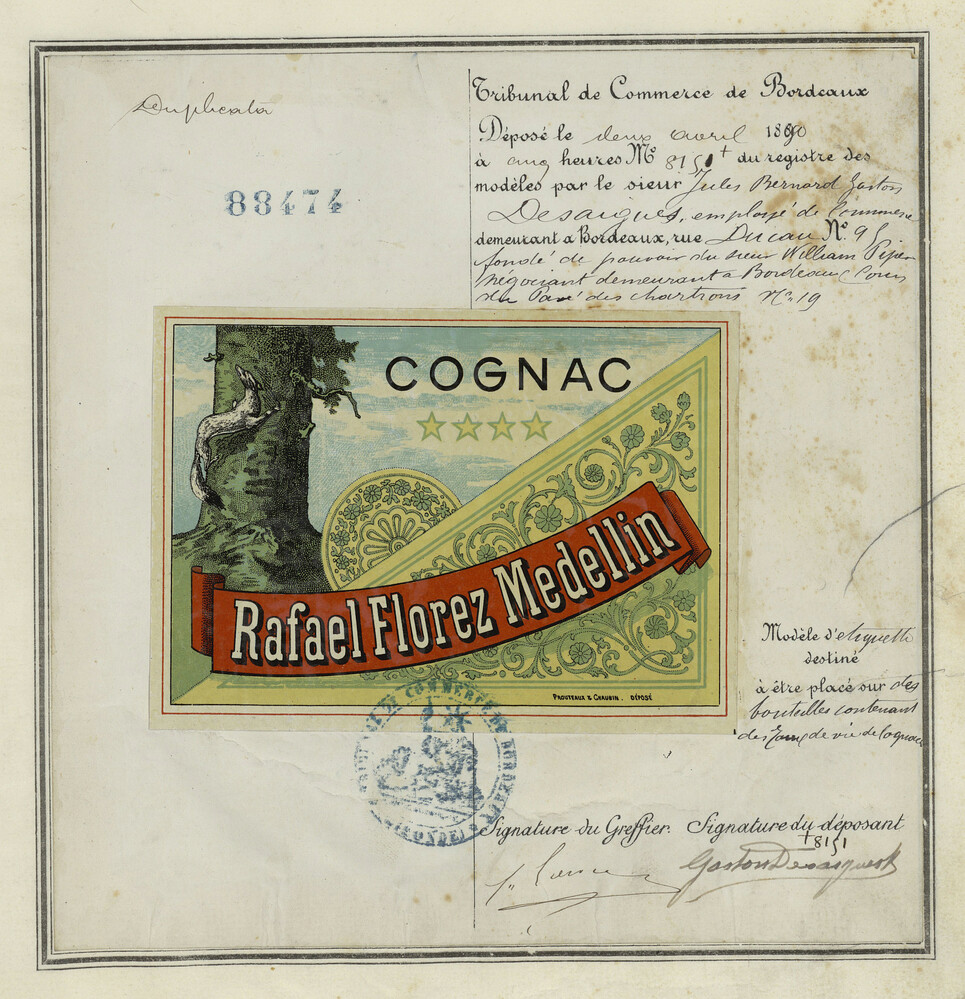 Duplicata
88474
Tribunal de Commerce de Bordeaux
Déposé le deux avril 1890
à cinq heures No 8151 + du registre des
modèles par le sieur Jules Bernard Gaston
Desaigues, employé de Commerce
demeurant a Bordeaux, rue Ducau No. 95
fondé de pouvoir du sieur William Piper
négociant demeurant à Bordeaux Cours
du Pavé des chartrons No 19
COGNAC
Rafael Florez Medellin
PROUTEAUX & CHAUBIN. DÉPOSÉ
Modèle d'etiquette
destiné
à être placé sur des
bouteilles contenant
des Eaux de vie de Cognac
TRIBUNAL DE COMMERCE DE BORDEAUX
(GIRONDE)
Signature du Greffier. Signature du déposant
+ 8151
Gaston Desaigues